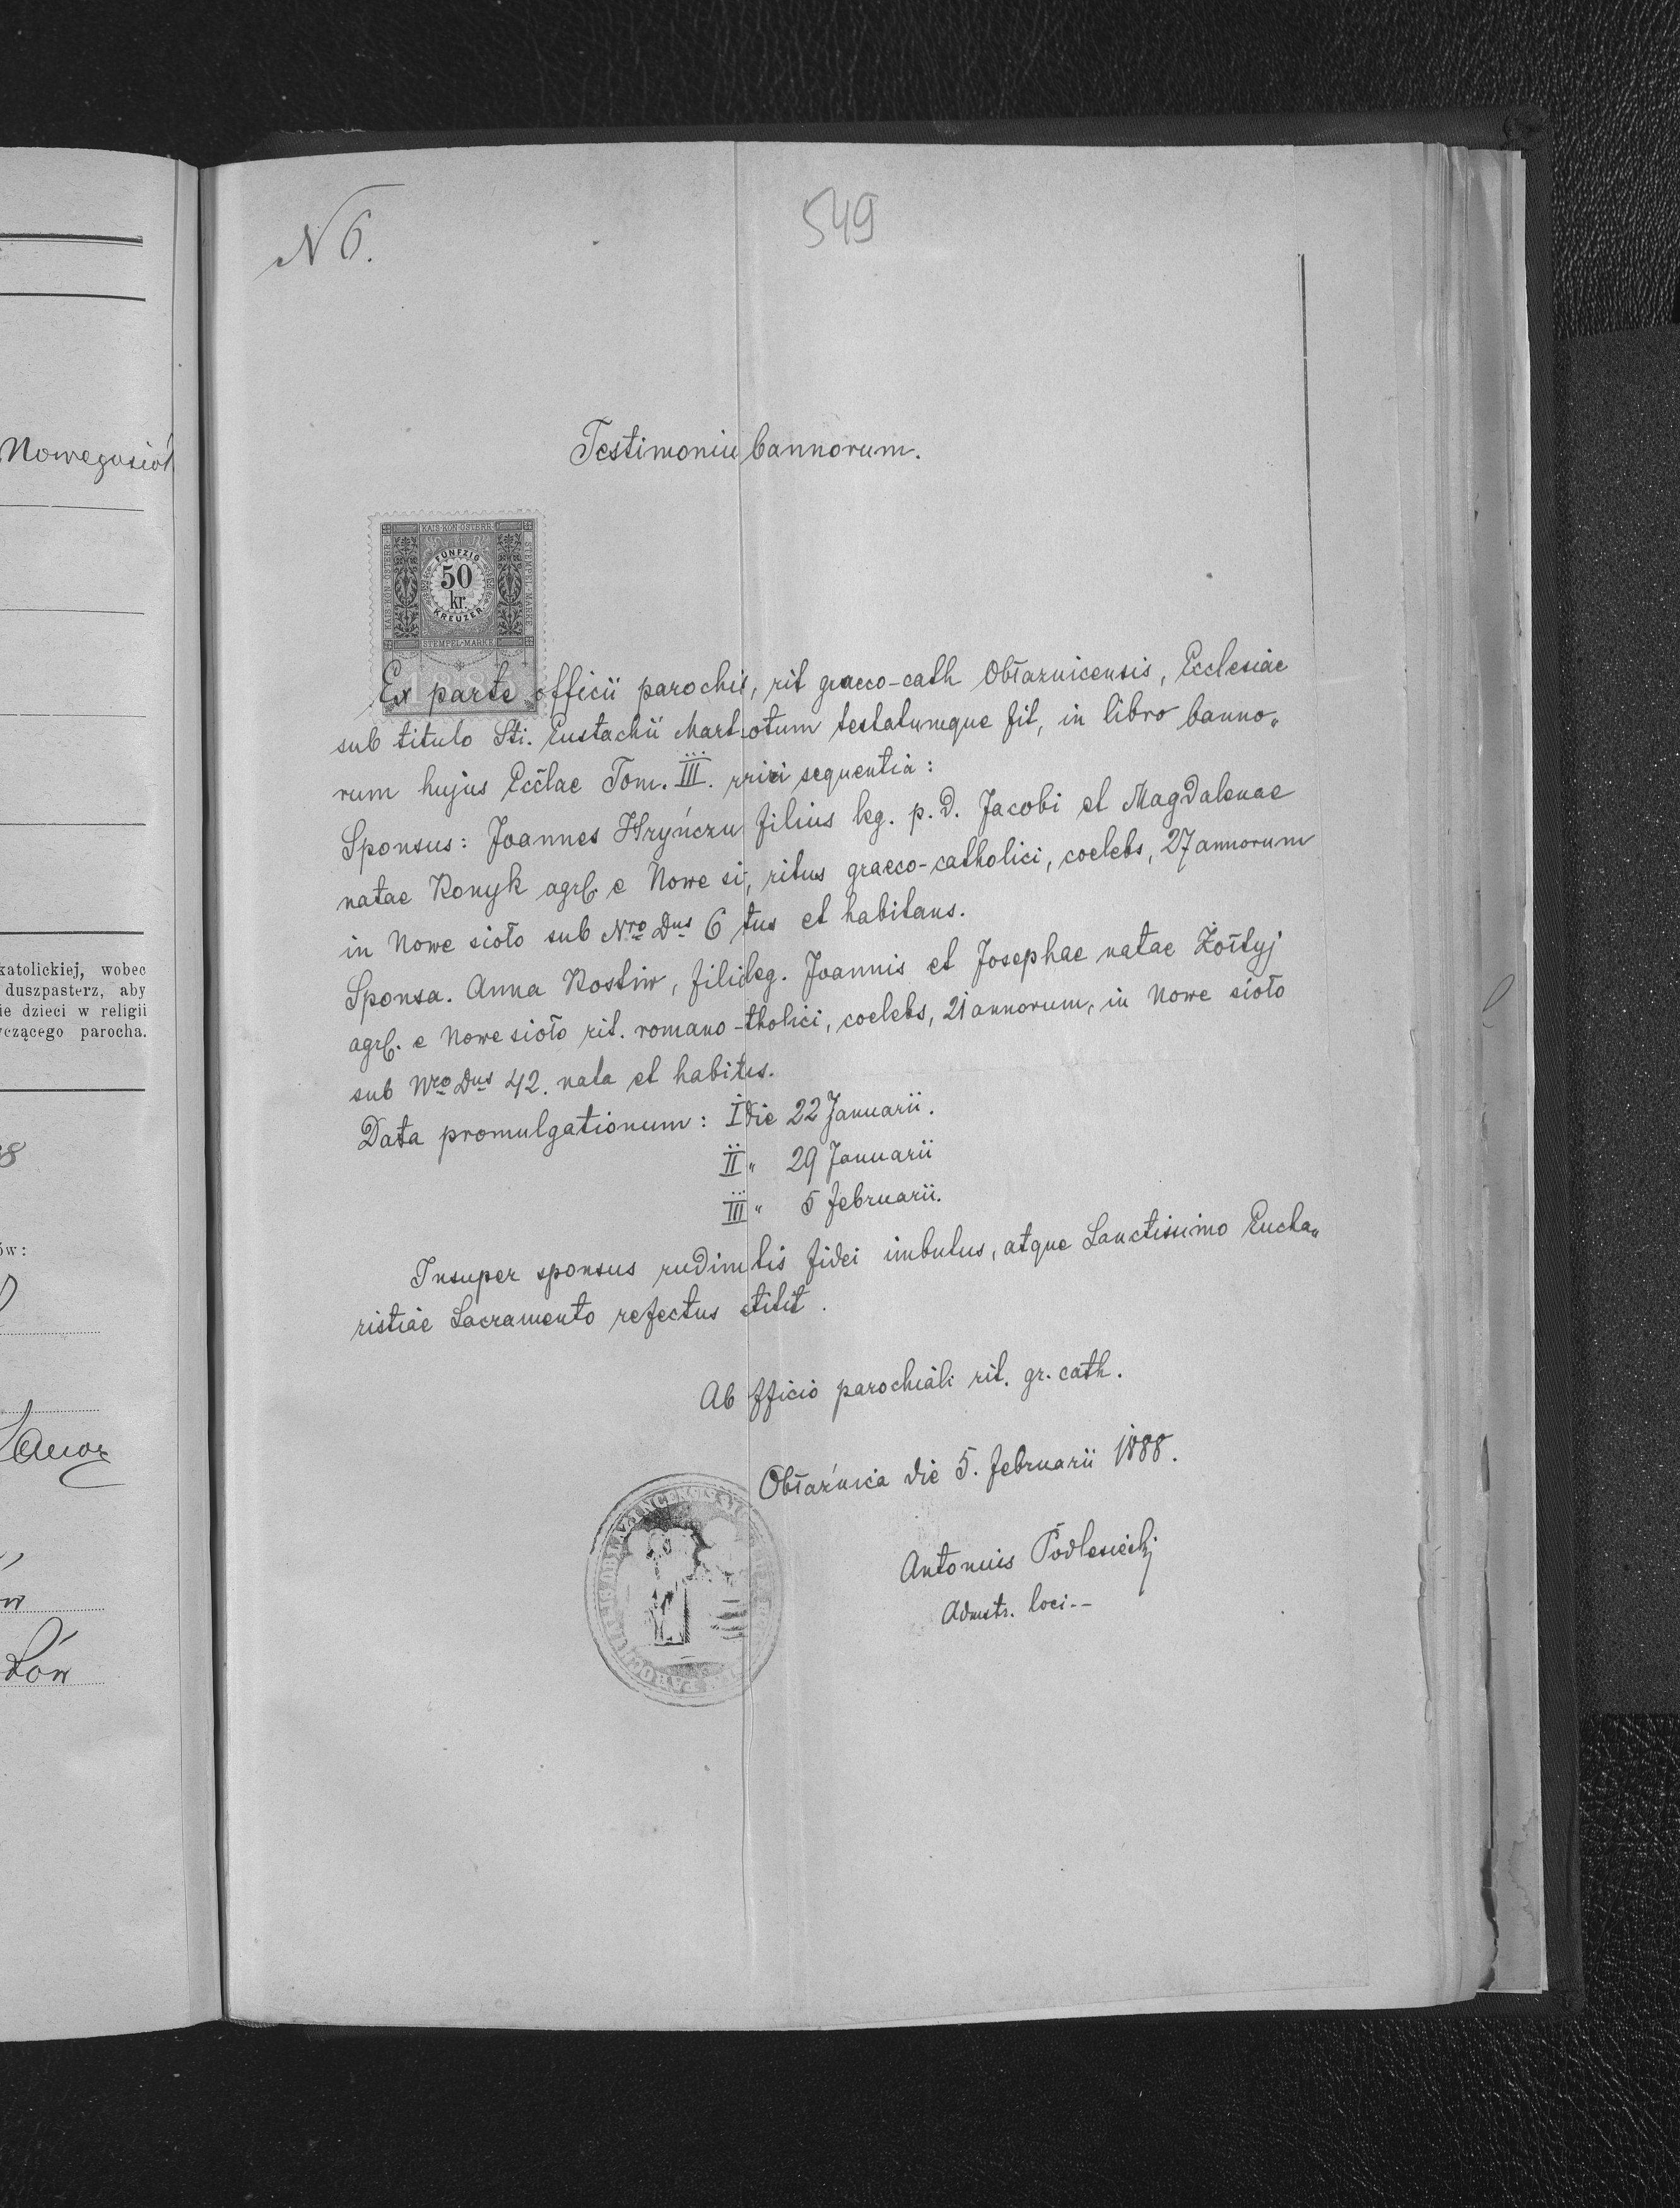 Nowegosioł
katolickiej, wobec
duszpasterz, aby
ie dzieci w religii
yczącego parocha.
8
ów:
w
łów
N 6.
549
Testimoniu bannorum.
KAIS·KÖN·ÖSTERR·
KAIS·KÖN·ÖSTERR·
STEMPEL·MARKE
FÜNFZIG
50
kr.
KREUZER
STEMPEL·MARKE
Ex parte officii parochi, rit graeco-cath Obłaznicensis, Ecclesiae
sub titulo Sti. Eustachii Mart otum testatumque fit, in libro banno„
rum hujus Eccłae Tom. III. sequentia:
Sponsus: Joannes Hryńczu filius leg. p. D. Jacobi et Magdalenae
natae Konyk agrl. e Nowe si, ritus graeco-catholici, coelebs, 27 annorum
in Nowe sioło sub Nro Dus 6 tus et habitans.
Sponsa. Anna Kostiw, fili leg. Joannis et Josephae natae Żołtyj
agrl. e Nowe sioło rit. romano-tholici, coelebs, 21 annorum, in Nowe sioło
sub Nro Dus 42. nata et habits.
Data promulgationum: I die 22 Januarii.
II „ 29 Januarii
III „ 5 februarii.
Insuper sponsus rudimtis fidei imbutus, atque Sanctissimo Eucha„
ristiae Sacramento refectus stitit.
Ab fficio parochiali rit. gr. cath.
Obłaźnica die 5. februarii 1888.
Antonius Podlesiecki
Admstr. loci--